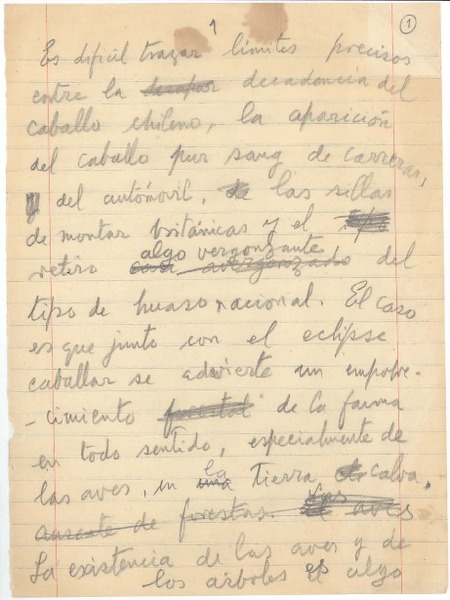 1 1
Es dificil trazar limites precisos
entre la decadencia del
caballo chileno, la aparición
del caballo pur sang de carreras,
y del automovil, de las sillas
de montar británicas y el
algo vergonzante
retiro casi avergonzado del
tipo de huaso nacional. El caso
es que junto con el eclipse
caballar se advierte un empobre-
-cimiento forestal de la fauna
en todo sentido, especialmente de
las aves, en la una tierra calva,
ausente de forestas. aves
La existencia de las aves y de
los árboles es algo